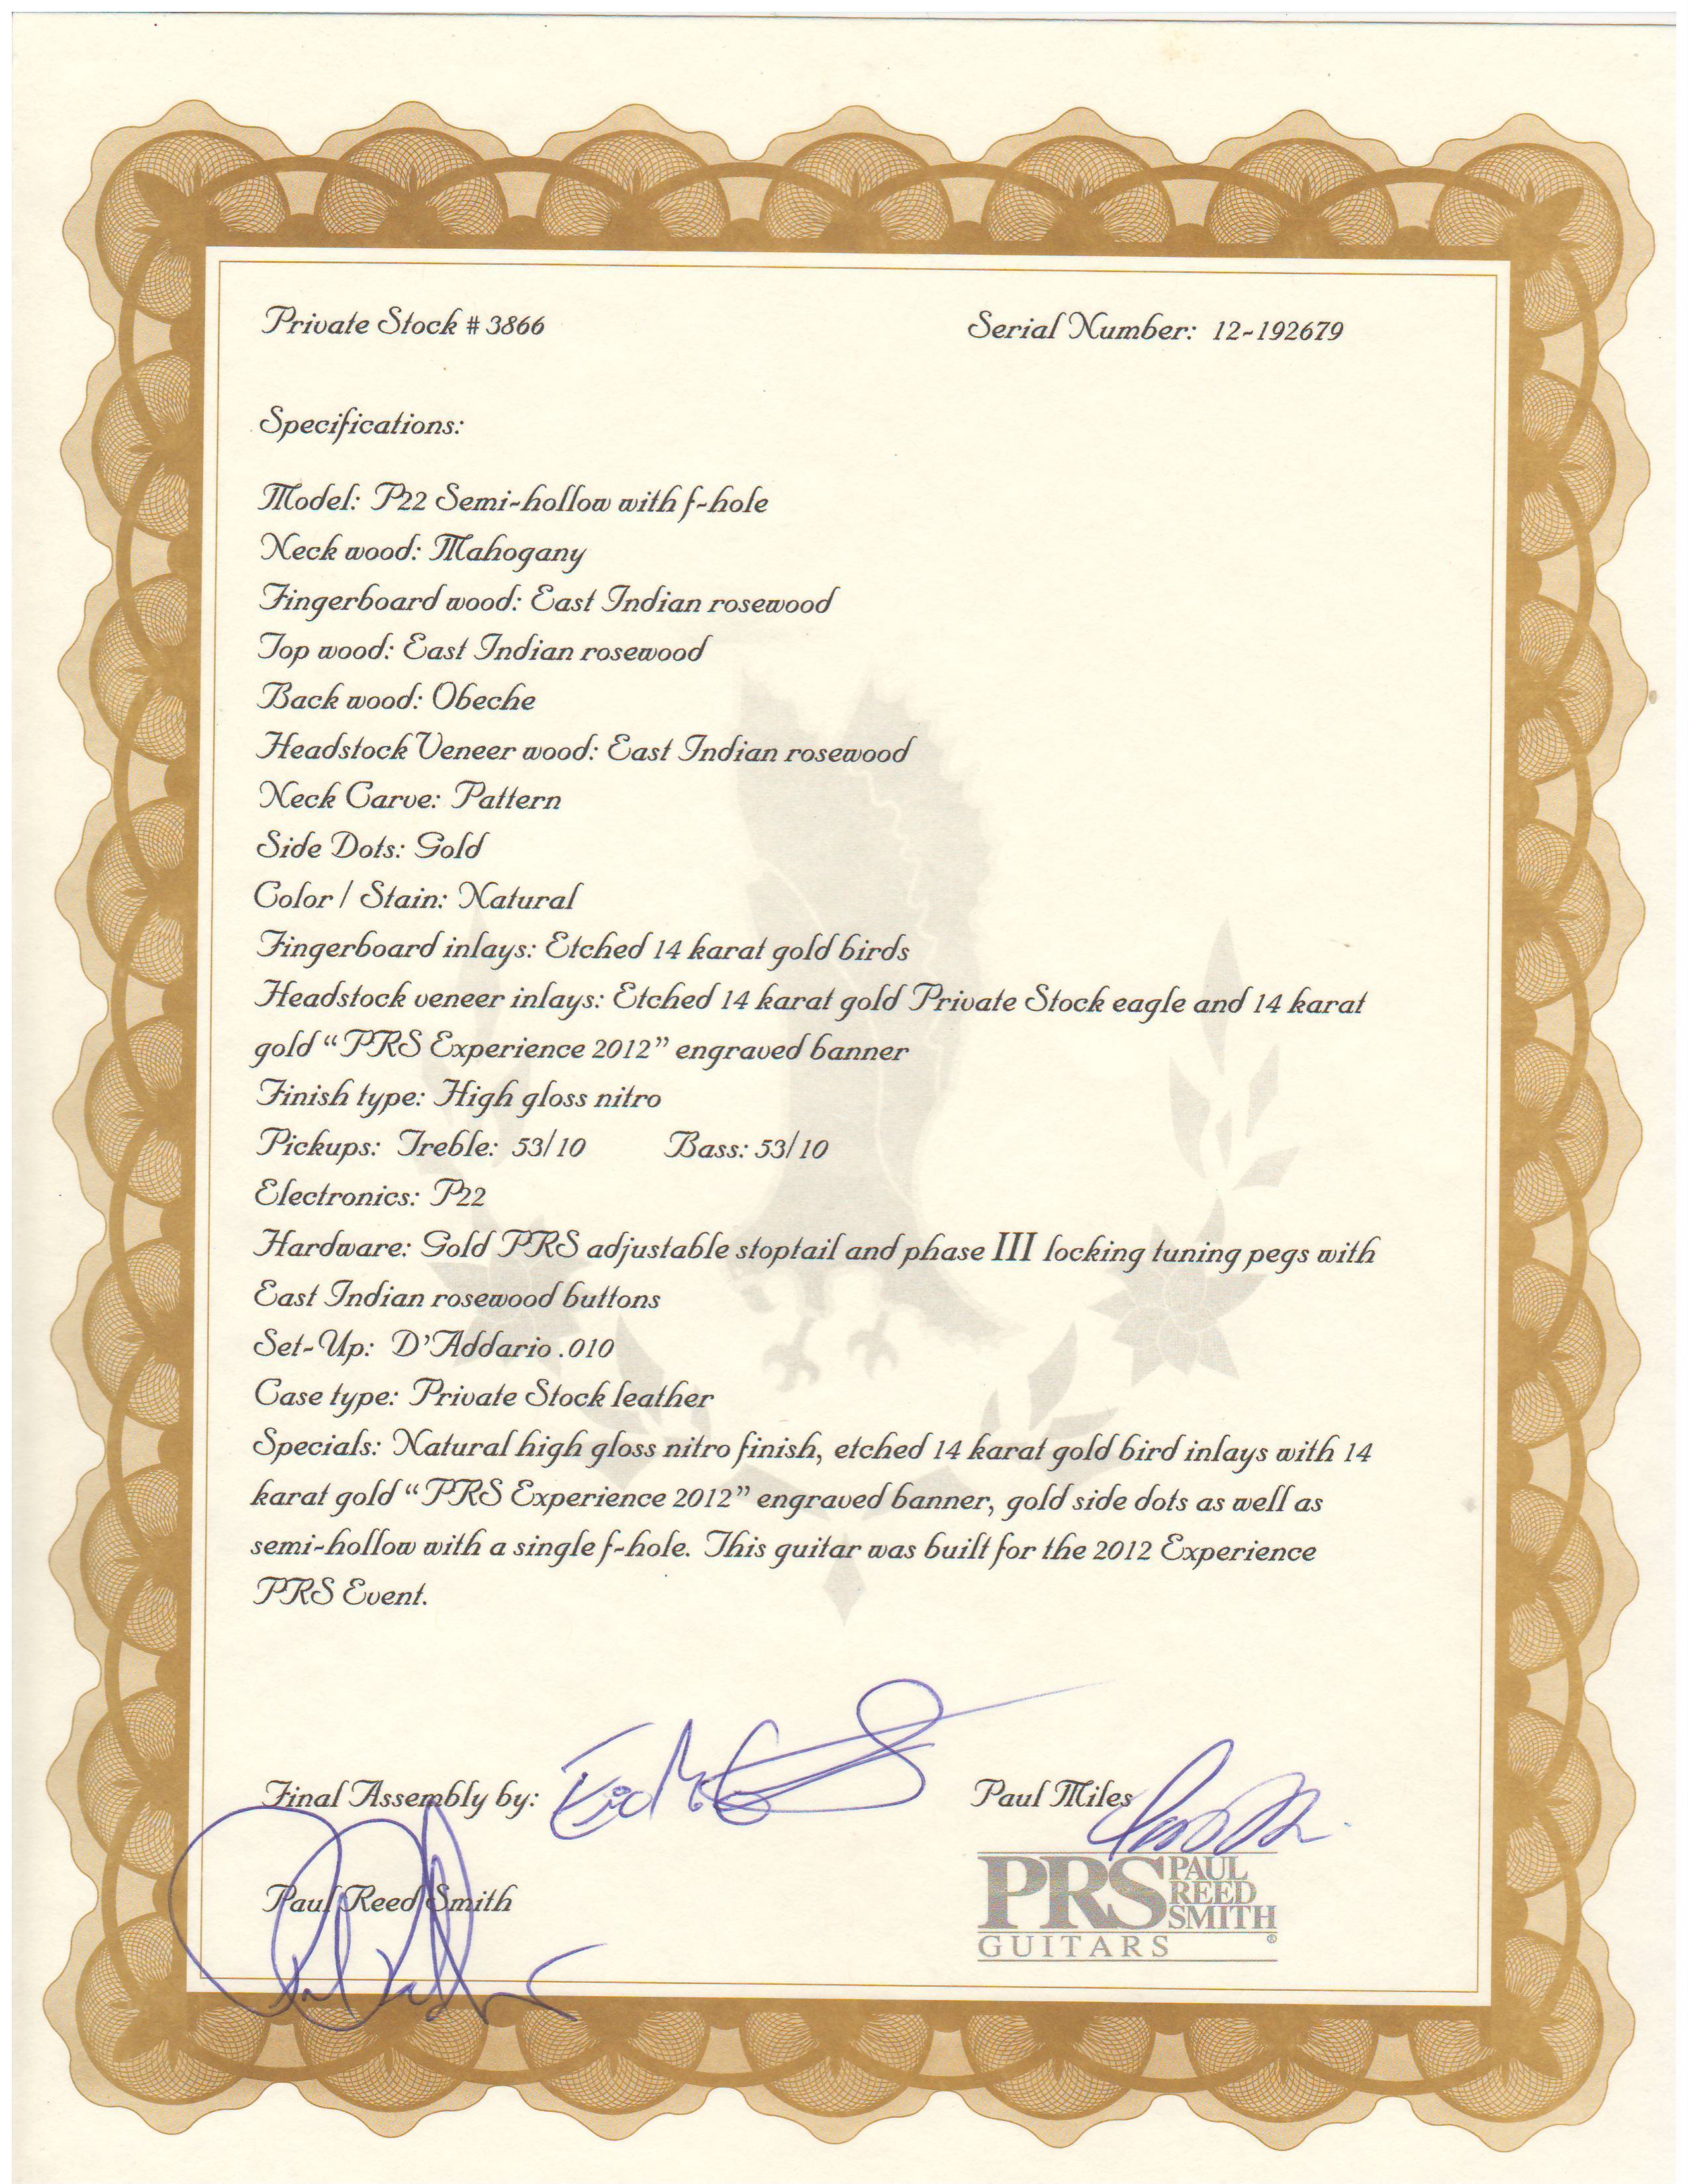 Private Stock # 3866 Serial Number: 12-192679
Specifications:
Model: P22 Semi-hollow with f-hole
Neck wood: Mahogany
Fingerboard wood: East Indian rosewood
Top wood: East Indian rosewood
Back wood: Obeche
Headstock Veneer wood: East Indian rosewood
Neck Carve: Pattern
Side Dots: Gold
Color / Stain: Natural
Fingerboard inlays: Etched 14 karat gold birds
Headstock veneer inlays: Etched 14 karat gold Private Stock eagle and 14 karat
gold “PRS Experience 2012” engraved banner
Finish type: High gloss nitro
Pickups: Treble: 53/10 Bass: 53/10
Electronics: P22
Hardware: Gold PRS adjustable stoptail and phase III locking tuning pegs with
East Indian rosewood buttons
Set-Up: D’Addario .010
Case type: Private Stock leather
Specials: Natural high gloss nitro finish, etched 14 karat gold bird inlays with 14
karat gold “PRS Experience 2012” engraved banner, gold side dots as well as
semi-hollow with a single f-hole. This guitar was built for the 2012 Experience
PRS Event.
Final Assembly by: Paul Miles
Paul Reed Smith
PRS PAUL
REED
SMITH
GUITARS ®